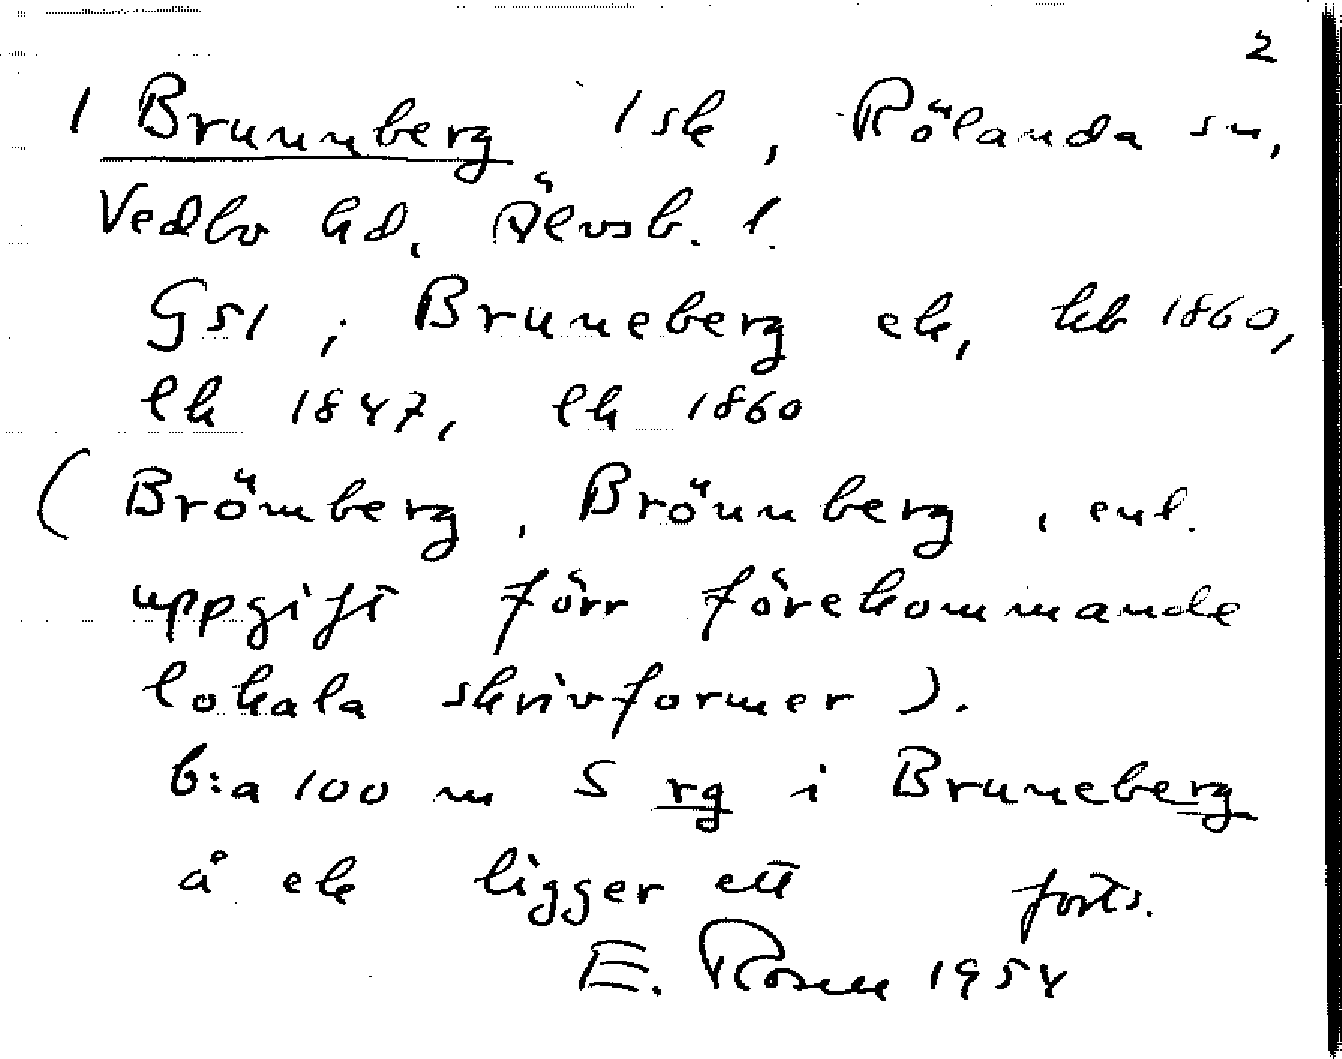 2
1 Brunnberg 1 sk, Rölanda sn,
Vedbo hd, Älvsb. l.
Gsl; Bruneberg ek, hb 1860,
lk 1847, lk 1860
(Brömberg, Brönnberg, enl.
uppgift förr förekommande
lokala skrivformer).
b:a 100 m S rg i Bruneberg
å ek ligger ett forts.
E. Rosell 1954